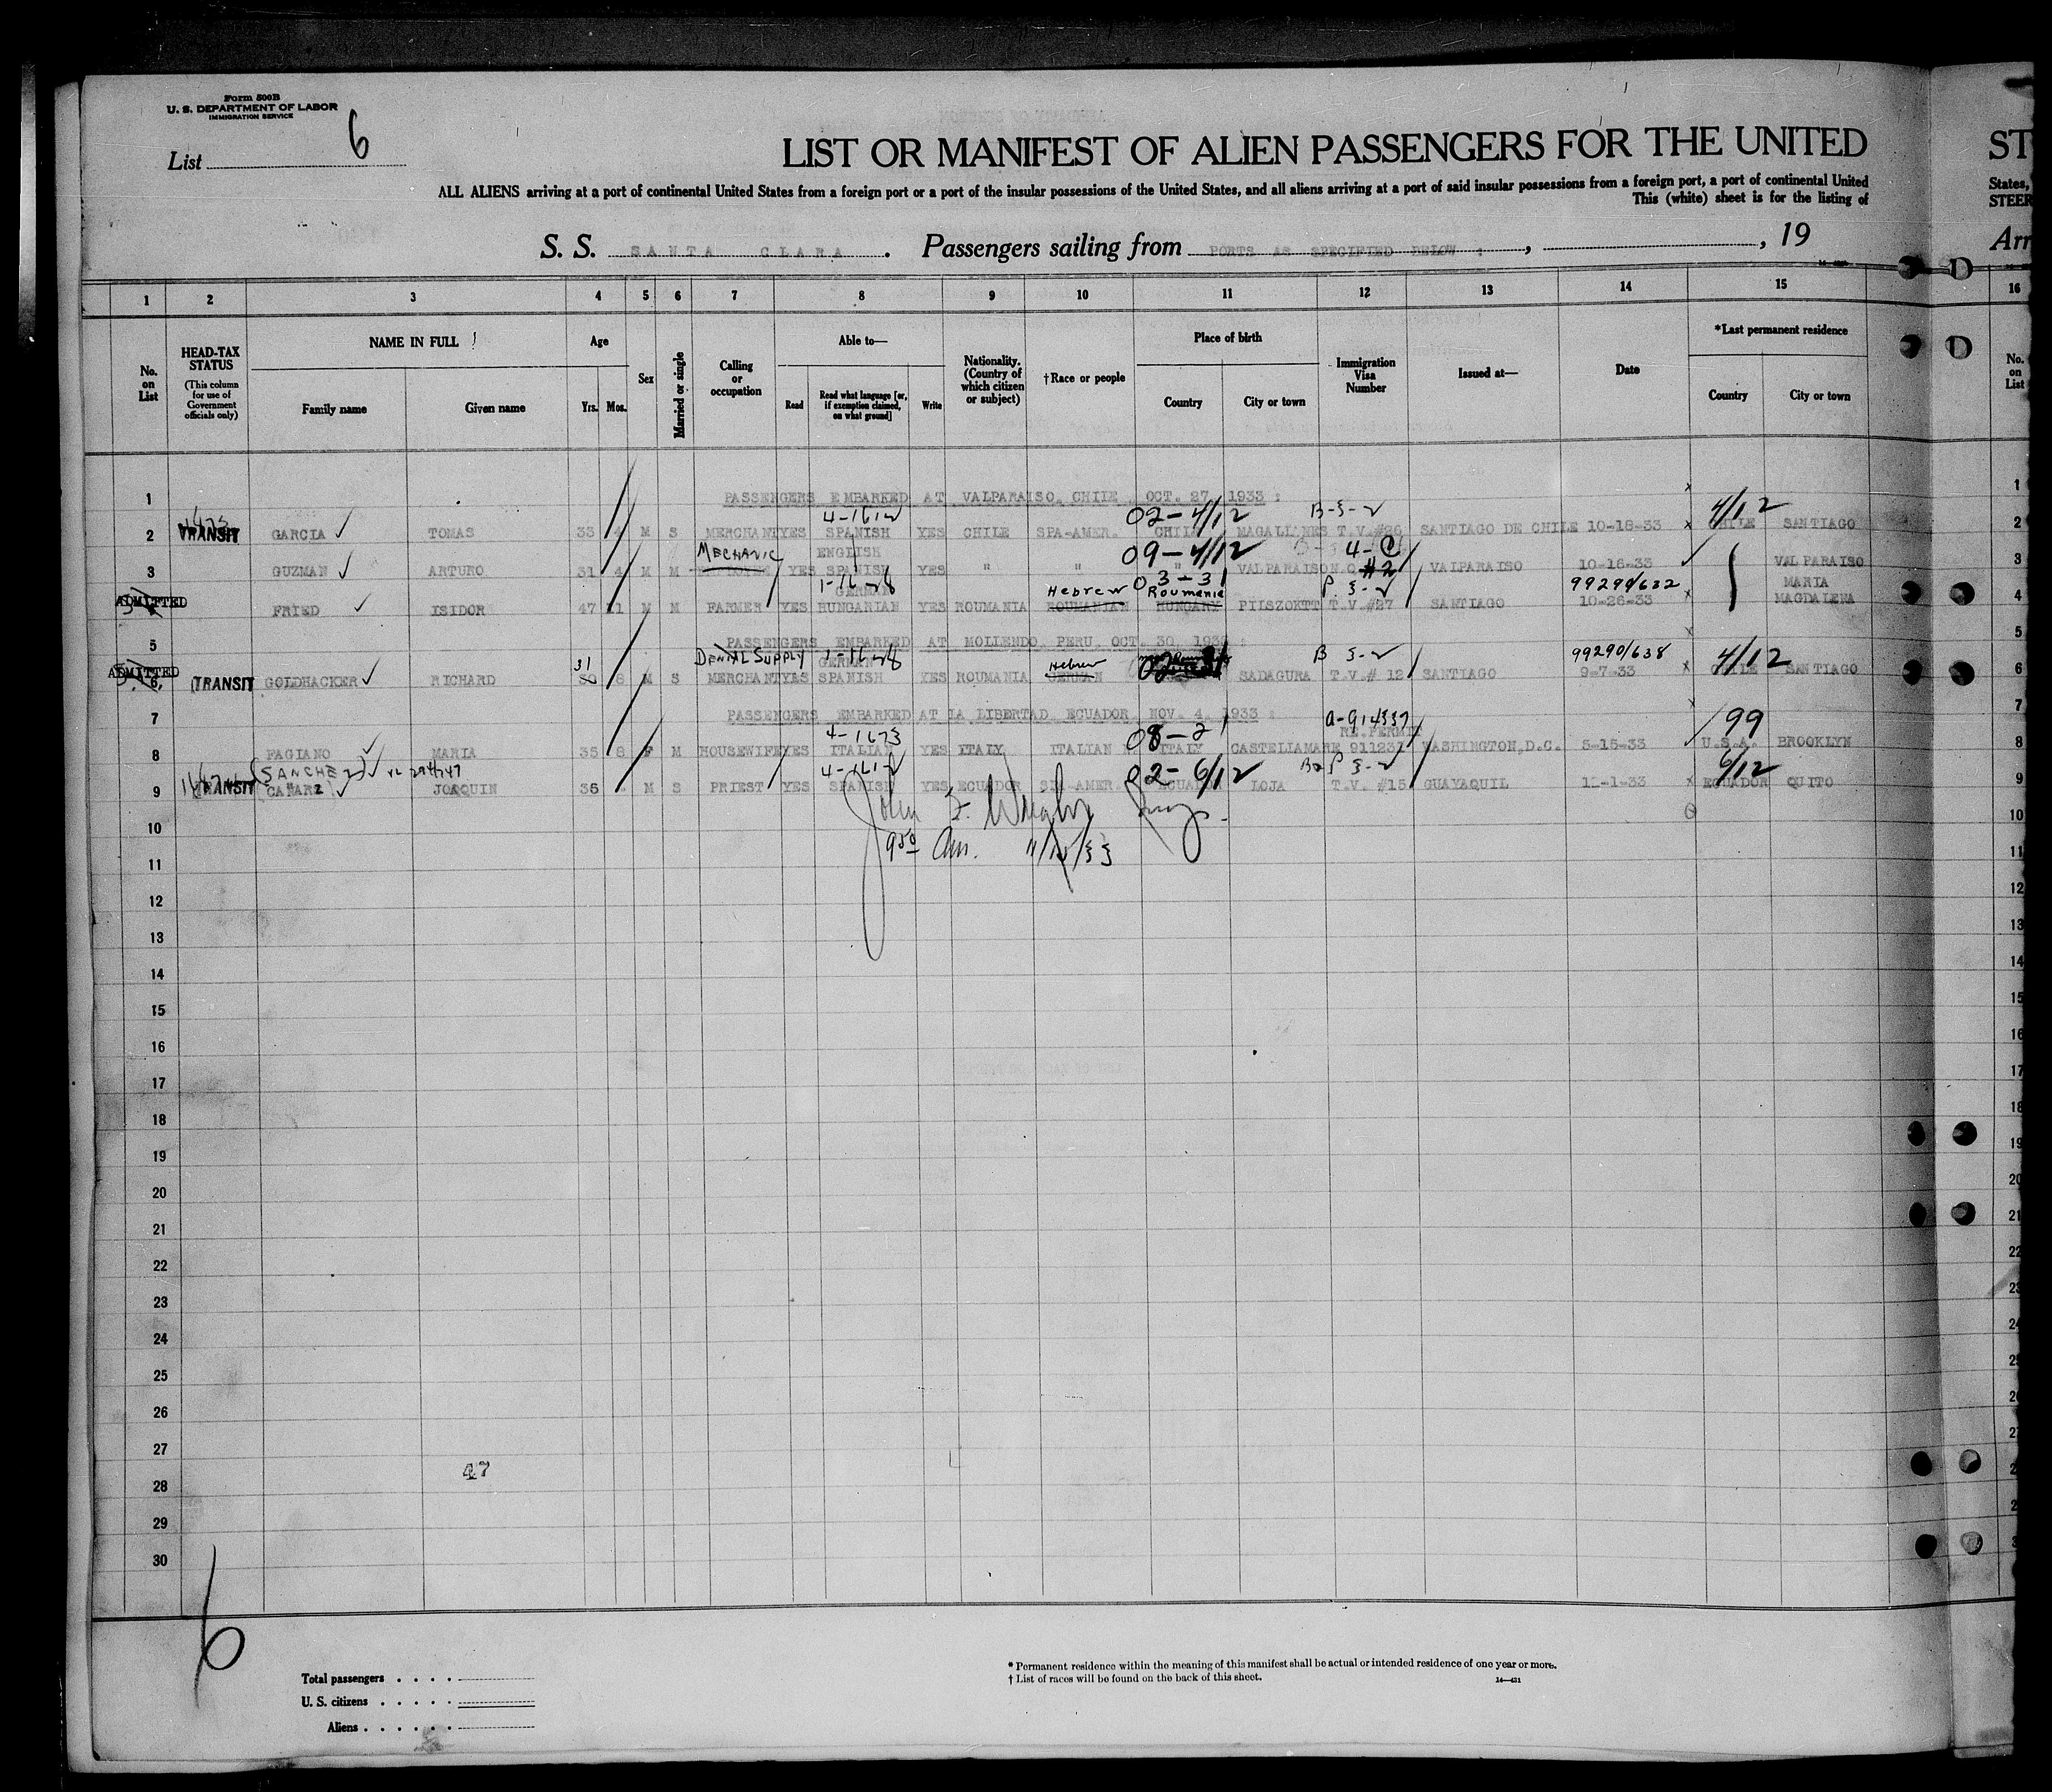 Form 500B
U. S. DEPARTMENT OF LABOR
IMMIGRATION SERVICE
List 6
LIST OR MANIFEST OF ALIEN PASSENGERS FOR THE UNITED
ST
ALL ALIENS arriving at a port of continental United States from a foreign port or a port of the insular possessions of the United States, and all aliens arriving at a port of said insular possessions from a foreign port, a port of continental United
States,
This (white) sheet is for the listing of
STEER
S. S. SANTA CLARA. Passengers sailing from PORTS AS SPECIFIED BELOW :, , 19
Arr
1 2 3 4 5 6 7 8 9 10 11 12 13 14 15 16
No. on List
HEAD-TAX STATUS (This column for use of Government officials only)
NAME IN FULL
Family name Given name
Age
Yrs. Mos.
Sex
Married or single
Calling or occupation
Able to—
Read
Read what language [or, if exemption claimed, on what ground]
Write
Nationality. (Country of which citizen or subject)
†Race or people
Place of birth
Country City or town
Immigration Visa Number
Issued at—
Date
*Last permanent residence
Country City or town
No. on List
1 PASSENGERS EMBARKED AT VALPARAISO, CHILE, OCT. 27, 1933 : 1
4-1612 02-4/12 B-3-2 4/12
2 TRANSIT GARCIA TOMAS 33 M S MERCHANT YES SPANISH YES CHILE SPA-AMER. CHILE MAGALLANES T.V.#26 SANTIAGO DE CHILE 10-18-33 CHILE SANTIAGO 2
MECHANIC ENGLISH 09-4/12 4-C
3 GUZMAN ARTURO 31 4 M M YES SPANISH YES " " " VALPARAISO N.Q. #2 VALPARAISO 10-16-33 VALPARAISO 3
ADMITTED GERMAN Hebrew 03-31 Roumania P. 3-2 99290/632 MARIA
4 FRIED ISIDOR 47 11 M M FARMER YES HUNGARIAN YES ROUMANIA ROUMANIAN HUNGARY PIISZOKTT T.V.#27 SANTIAGO 10-26-33 MAGDALENA 4
5 PASSENGERS EMBARKED AT MOLLENDO, PERU, OCT. 30, 1933 : 5
ADMITTED 31 DENTAL SUPPLY GERMAN Hebrew B 3-2 99290/638 4/12
6 TRANSIT GOLDHACKER RICHARD 30 8 M S MERCHANT YES SPANISH YES ROUMANIA GERMAN SADAGURA T.V.# 12 SANTIAGO 9-7-33 CHILE SANTIAGO 6
7 PASSENGERS EMBARKED AT LA LIBERTAD, ECUADOR, NOV. 4, 1933 : 7
4-1673 08-2 RE.PERMIT 99
8 FAGIANO MARIA 35 8 F M HOUSEWIFE YES ITALIAN YES ITALY ITALIAN ITALY CASTELLAMARE 911231 WASHINGTON,D.C. 8-15-33 U.S.A. BROOKLYN 8
(SANCHEZ) 4-1612 02-6/12 3-2 6/12
9 TRANSIT CANARZ JOAQUIN 36 M S PRIEST YES SPANISH YES ECUADOR SPA-AMER. ECUADOR LOJA T.V. #15 GUAYAQUIL 11-1-33 ECUADOR QUITO 9
10 10
950 Am.
11 11
12 12
13 13
14 14
15 15
16 16
17 17
18 18
19 19
20 20
21 21
22 22
23 23
24 24
25 25
26 26
27 27
47
28
29
30
6
Total passengers
U. S. citizens
Aliens
* Permanent residence within the meaning of this manifest shall be actual or intended residence of one year or more.
† List of races will be found on the back of this sheet.